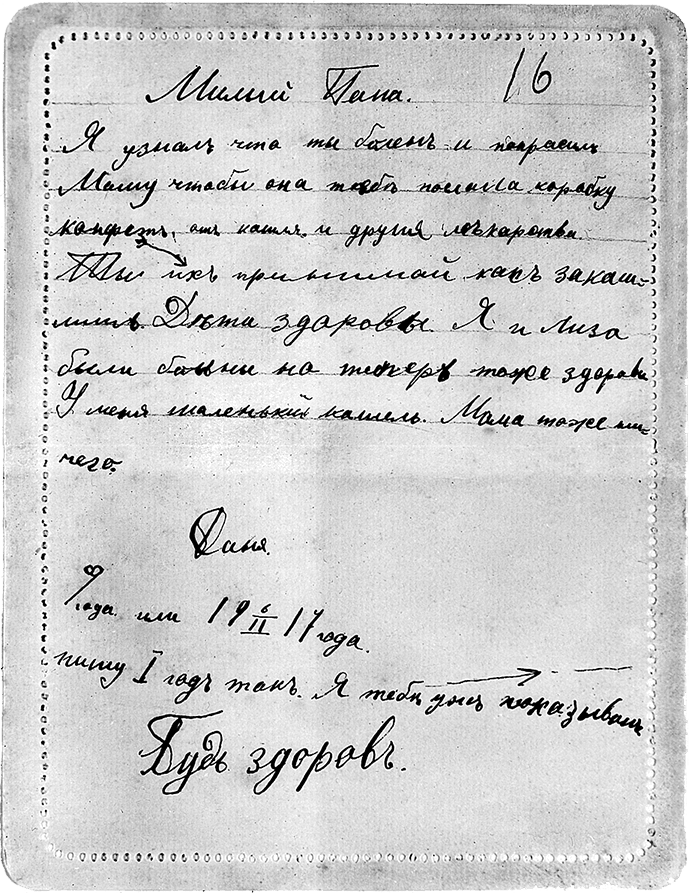 16
Милый Папа.
Я узналъ что ты боленъ и попрасилъ
Машу чтобы она тебѣ посласа коробку
конфетъ, отъ кашля и другия лѣкарства.
Ты ихъ принимай какъ закаш-
лишъ. Дѣти здоровы. Я и Лиза
были больны но теперь тоже здоровы
У меня маленький кашель. Мама тоже ни-
чего.
Даня.
года или 19 6/II 17 года.
пишу I годъ такъ. Я тебѣ ужъ показывалъ
Будь здоровъ.